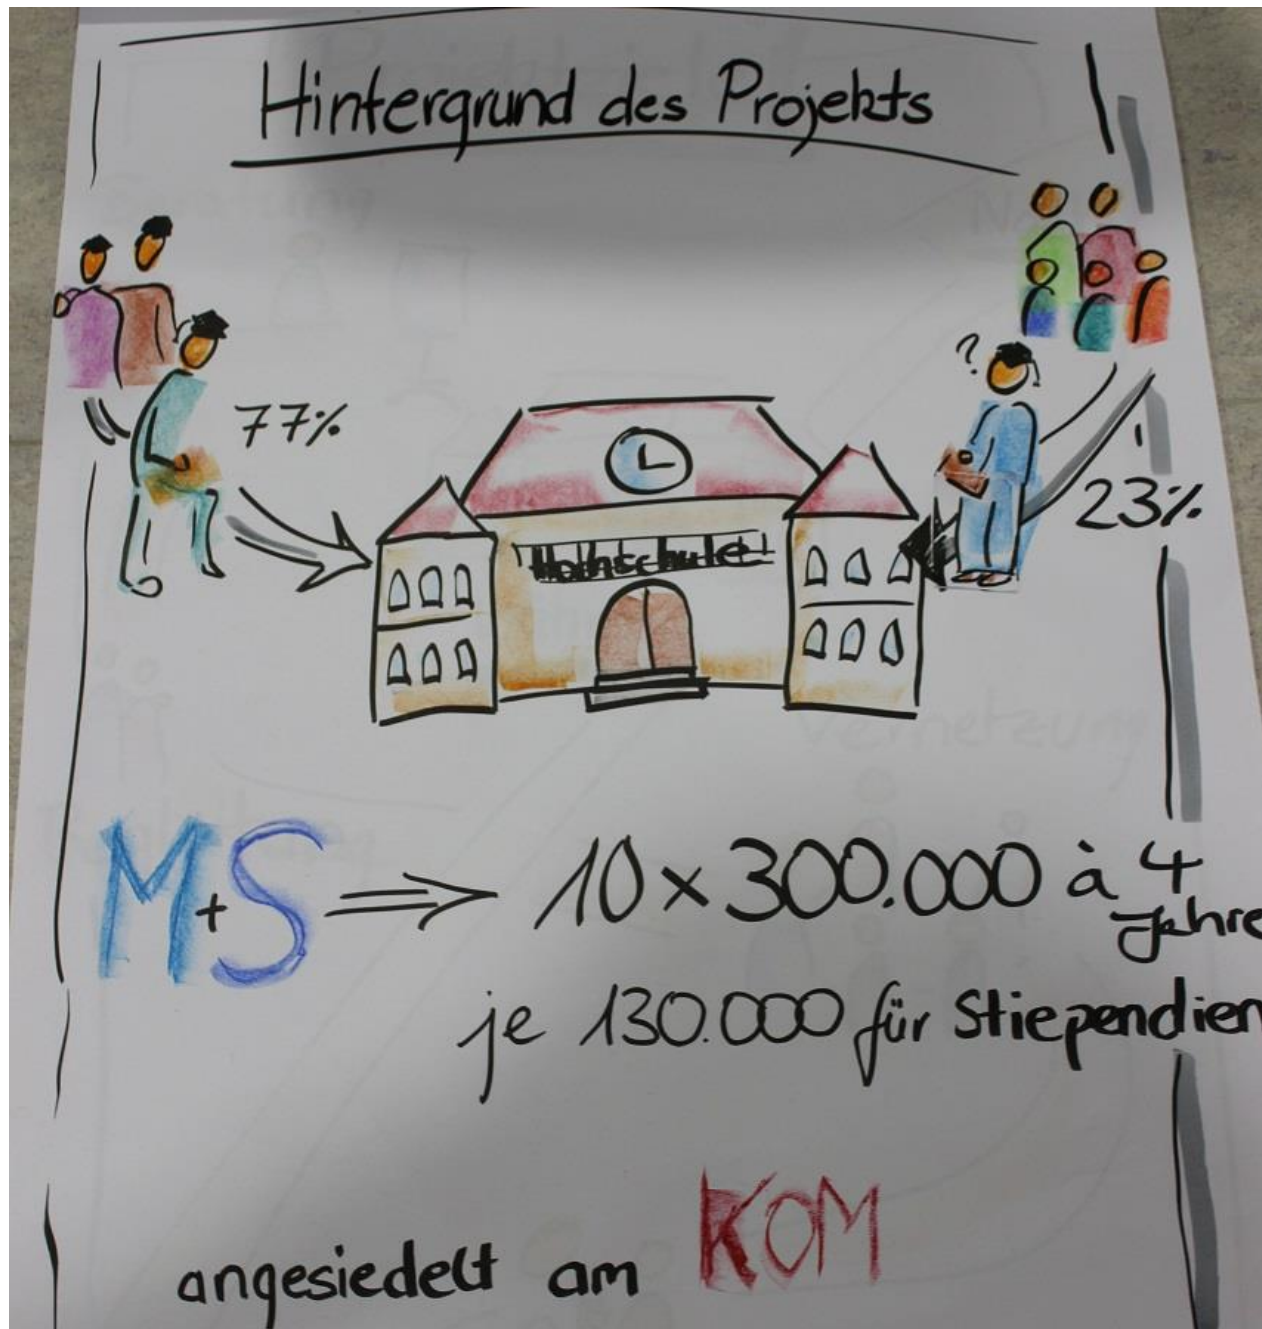 Hintergrund des Projekts
?
77%
23%
Hochschule
M+S ⇒ 10 x 300.000 à 4 Jahre
je 130.000 für Stiependien
angesiedelt am KOM